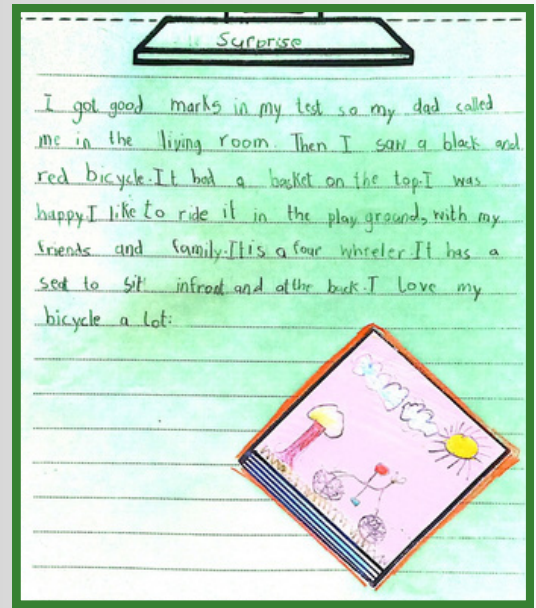 Surprise
I got good marks in my test so my dad called
me in the living room. Then I saw a black and
red bicycle.It had a basket on the top.I was
happy.I like to ride it in the play ground, with my
friends and family.It is a four wheeler.It has a
seat to sit infront and at the back.I love my
bicycle a lot.